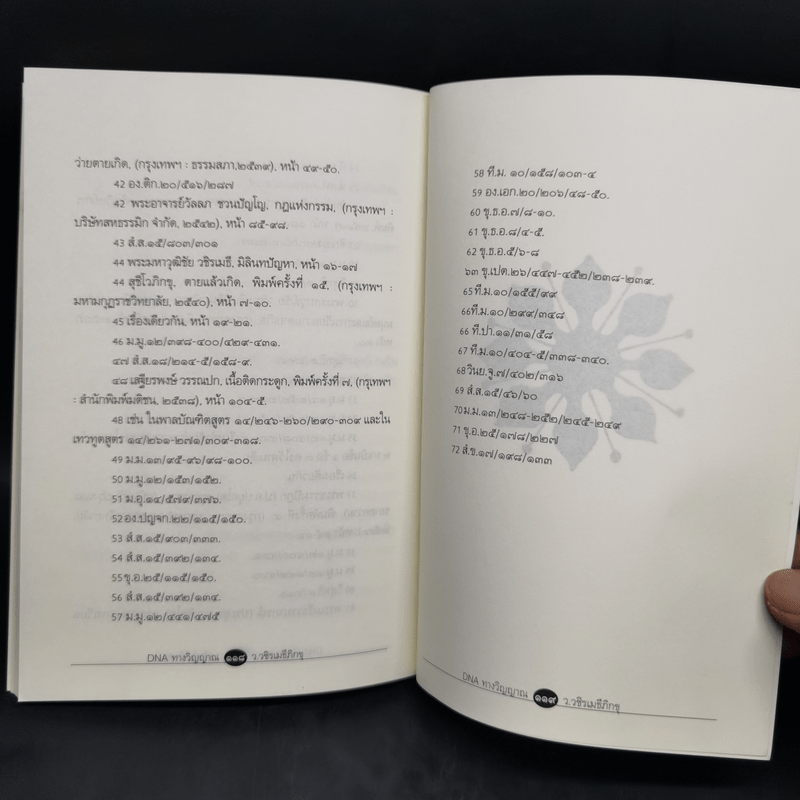 ว่ายตายเกิด, (กรุงเทพฯ : ธรรมสภา,๒๕๓๙), หน้า ๔๙-๕๐.
42 อง.ติก.๒๐/๕๑๖/๒๘๗
42 พระอาจารย์วัลลภ ชวนปัญโญ, กฎแห่งกรรม, (กรุงเทพฯ :
บริษัทสหธรรมิก จำกัด, ๒๕๔๒), หน้า ๘๕-๙๘.
43 สํ.ส.๑๕/๘๐๓/๓๐๑
44 พระมหาวุฒิชัย วชิรเมธี, มิลินทปัญหา, หน้า ๑๖-๑๗
44 สุชีโวภิกขุ, ตายแล้วเกิด, พิมพ์ครั้งที่ ๑๕, (กรุงเทพฯ :
มหามกุฏราชวิทยาลัย, ๒๕๔๐), หน้า ๗-๑๐.
45 เรื่องเดียวกัน, หน้า ๑๙-๒๑.
46 ม.มู.๑๒/๓๙๘-๔๐๐/๔๒๙-๔๓๑.
๔๗ สํ.ส.๑๘/๒๑๔-๕/๑๕๘-๙.
๔๘ เสฐียรพงษ์ วรรณปก, เนื้อติดกระดูก, พิมพ์ครั้งที่ ๗, (กรุเทพฯ
: สำนักพิมพ์มติชน, ๒๕๓๘), หน้า ๑๐๔-๕.
48 เช่น ในพาลบัณฑิตสูตร ๑๔/๒๔๖-๒๖๐/๒๙๐-๓๐๙ และใน
เทวทูตสูตร ๑๔/๒๖๑-๒๗๑/๓๐๙-๓๑๘.
49 ม.ม.๑๓/๙๕-๙๖/๙๘-๑๐๐.
50 ม.มู.๑๒/๑๕๓/๑๕๒.
51 ม.อุ.๑๔/๕๗๙/๓๗๖.
52 อง.ปญจก.๒๒/๑๑๕/๑๕๐.
53 สํ.ส.๑๕/๙๐๓/๓๓๓.
54 สํ.ส.๑๕/๓๙๒/๑๓๔.
55 ขุ.อ.๒๕/๑๑๕/๑๕๐.
56 สํ.ส.๑๕/๓๙๒/๑๓๔.
57 ม.มู.๑๒/๔๔๑/๔๗๕
DNA ทางวิญญาณ ๑๑๘ ว.วชิรเมธีภิกขุ
58 ที.ม. ๑๐/๑๕๘/๑๐๓-๔
59 อง.เอก.๒๐/๒๐๖/๔๘-๕๐.
60 ขุ.ธ.อ.๗/๘-๑๐.
61 ขุ.ธ.อ.๘/๔-๕.
62 ขุ.ธ.อ.๕/๖-๘
๖๓ ขุ.เปต.๒๖/๔๔๗-๔๕๒/๒๓๘-๒๓๙.
65 ที.ม.๑๐/๑๕๕/๙๙
66 ที.ม.๑๐/๒๙๙/๓๔๘
66 ที.ปา.๑๑/๓๑/๕๘
67 ที.ม.๑๐/๔๐๔-๕/๓๓๘-๓๔๐.
68 วินย.จู.๗/๔๐๒/๓๑๖
69 สํ.ส.๑๕/๔๖/๖๐
70 ม.ม.๑๓/๒๔๘-๒๕๒/๒๔๕-๒๔๙
71 ขุ.อ.๒๕/๑๗๘/๒๒๗
72 สํ.ข.๑๗/๑๙๘/๑๓๓
DNA ทางวิญญาณ ๑๑๙ ว.วชิรเมธีภิกขุ